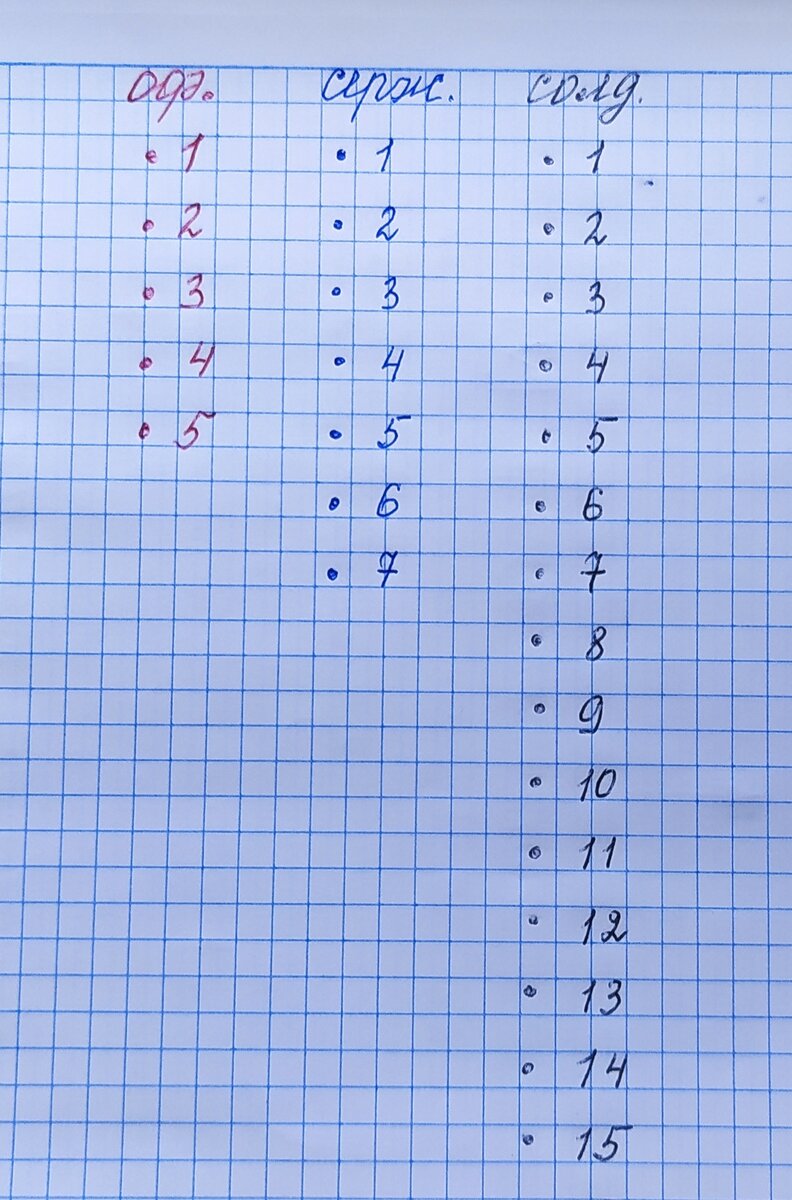 оф. серж. солд.
• 1 • 1 • 1
• 2 • 2 • 2
• 3 • 3 • 3
• 4 • 4 • 4
• 5 • 5 • 5
• 6 • 6
• 7 • 7
• 8
• 9
• 10
• 11
• 12
• 13
• 14
• 15